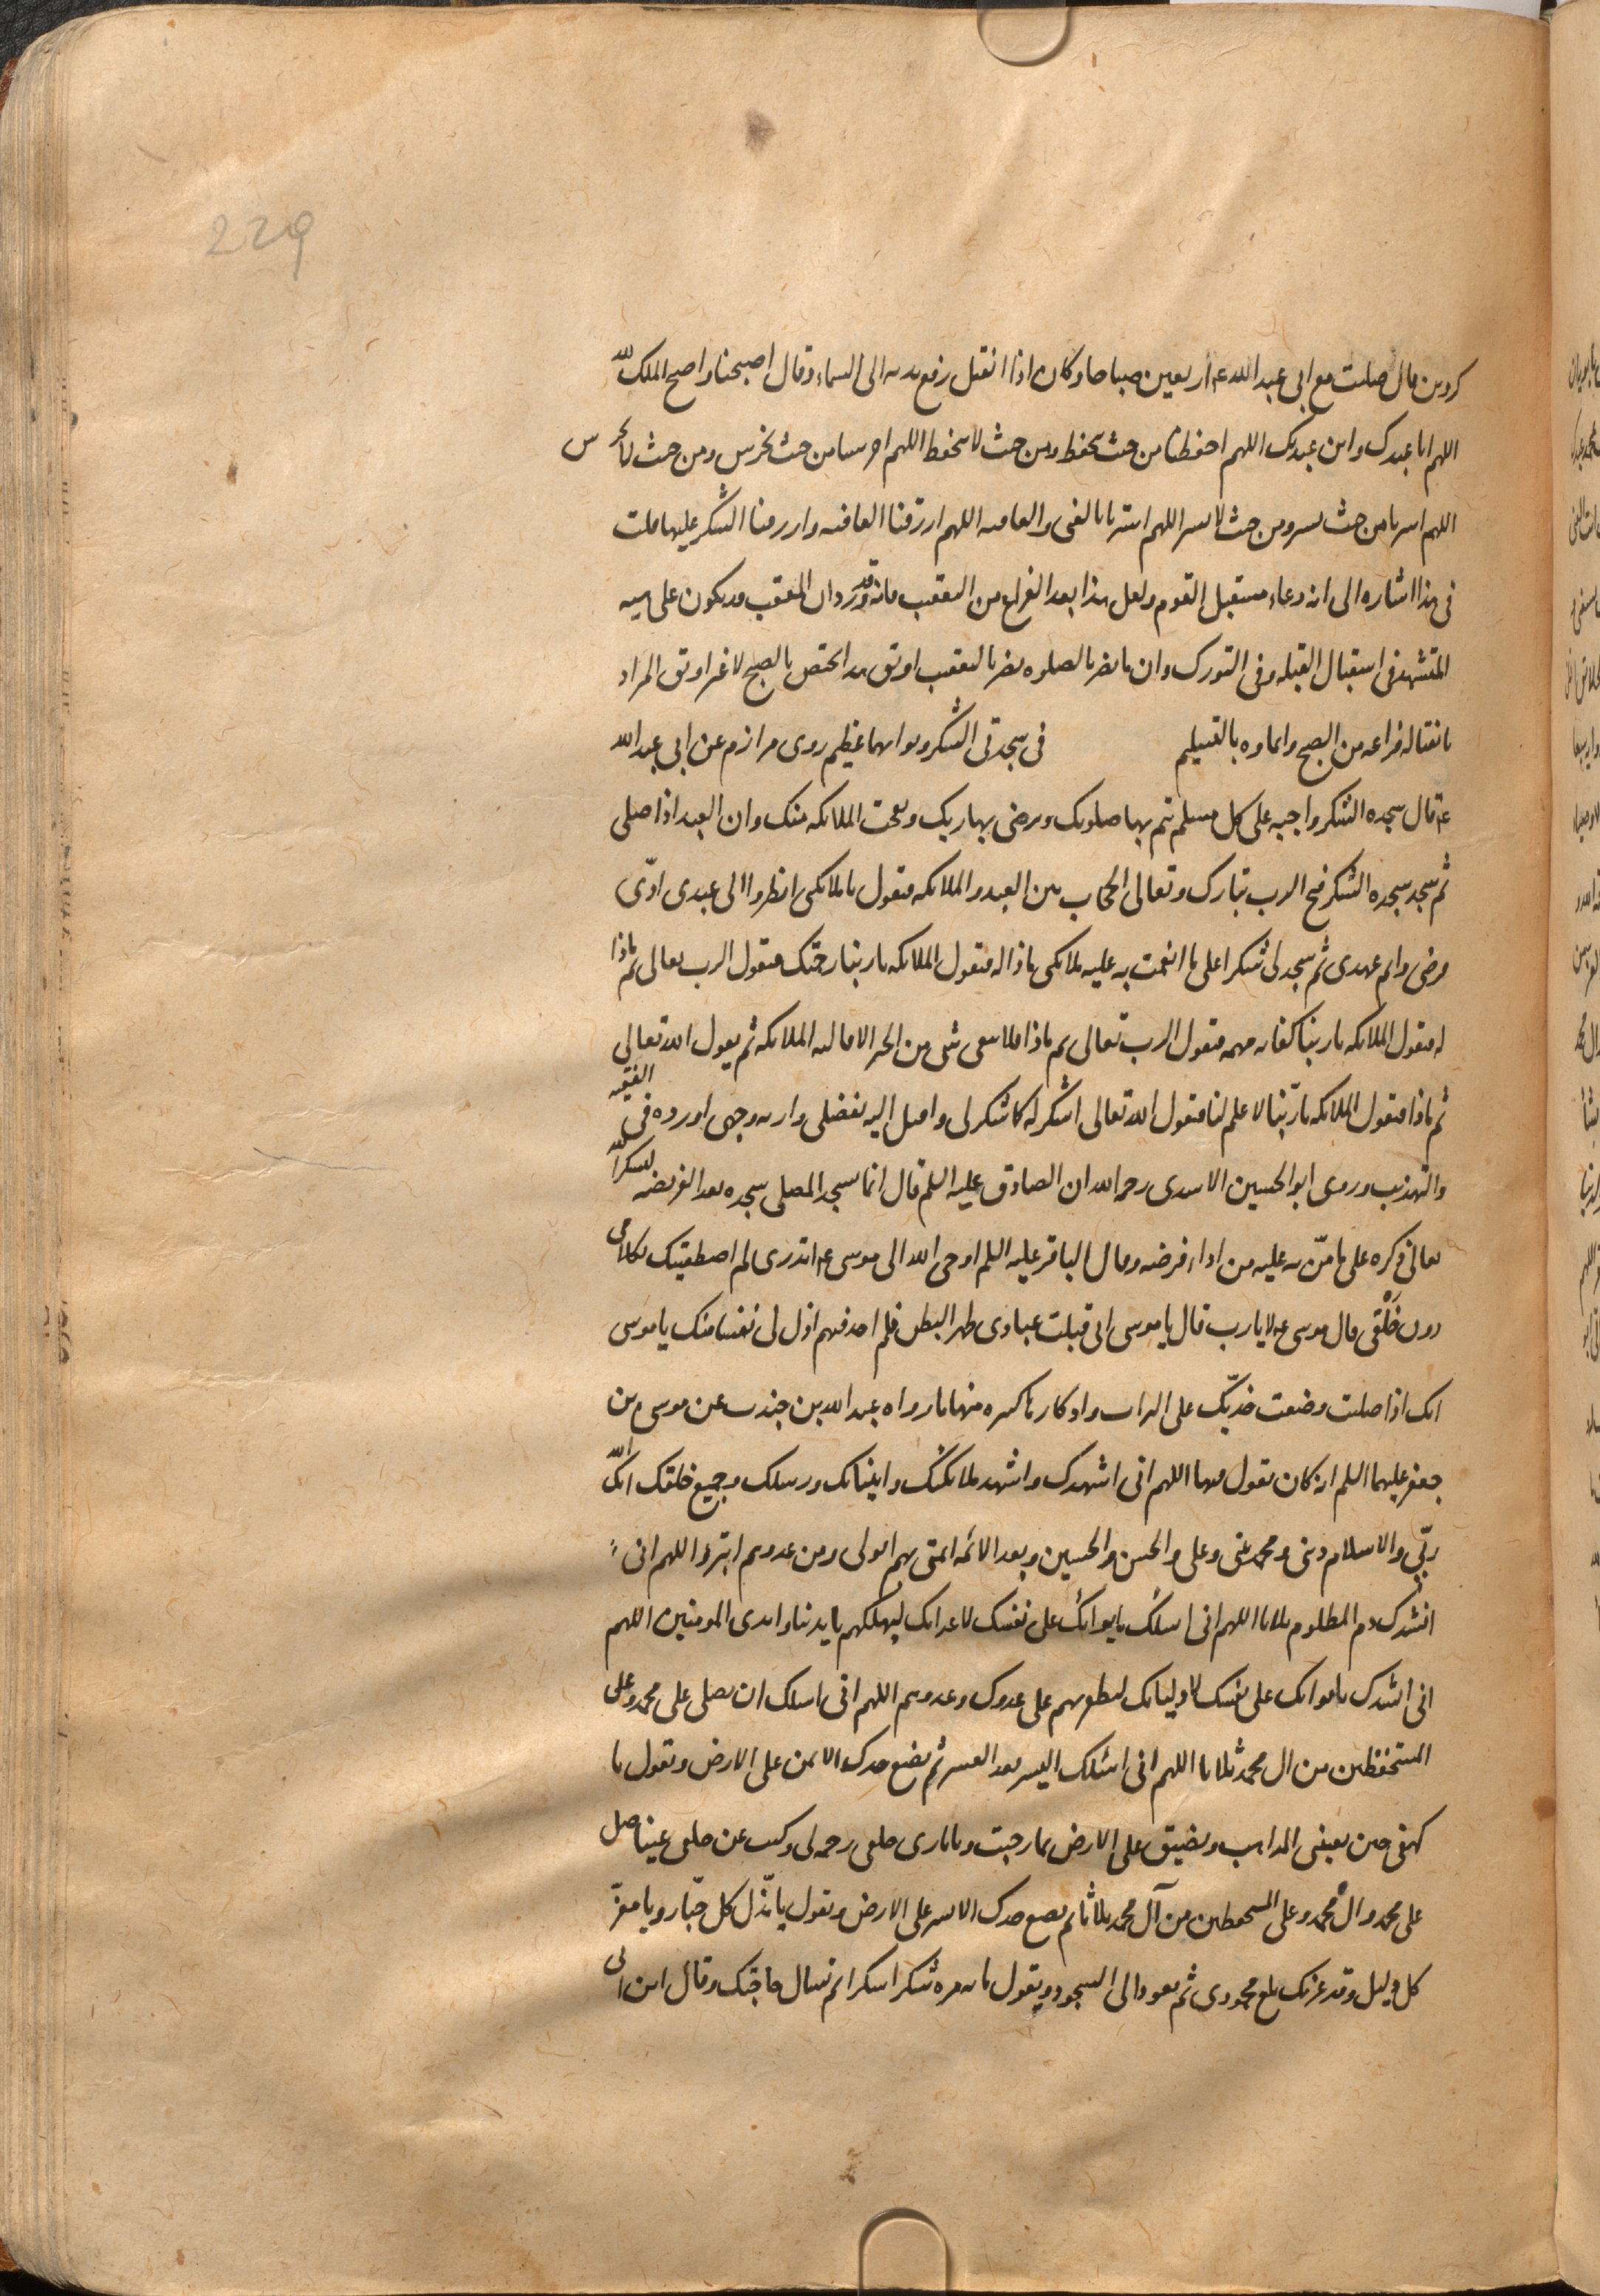 229
كردين قال صليت مع ابى عبد الله ع اربعين صباحا وكان اذا انفتل رفع يديه الى السماء وقال اصبحنا واصبح الملك لله
اللهم انا عبدك وابن عبدك اللهم احفظنا من حيث نحفظ ومن حيث لا نحفظ اللهم احرسنا من حيث نحترس ومن حيث لا نحترس
اللهم استرنا من حيث نستر ومن حيث لا نستر اللهم استرنا بالغنى والعافيه اللهم ارزقنا العافيه وارزقنا الشكر عليها قلت
فى هذا اشاره الى انه دعاء مستقبل القوم ولعل هذا بعد الفراغ من التعقيب فانه قد ورد ان المعقب يكون على هيئه
المتشهد فى استقبال القبله وفى التورك وان ما يضر بالصلوه يضر بالتعقيب او تق هذا مختص بالصبح لا غير او تق المراد
بانفتاله فراغه من الصبح وايماوه بالتسليم فى سجدتى الشكر وثوابهما عظيم روى مرازم عن ابى عبد الله
ع قال سجده الشكر واجبه على كل مسلم تتم بها صلوتك وترضى بها ربك وتعجب الملائكه منك وان العبد اذا صلى
ثم سجد سجده الشكر فتح الرب تبارك وتعالى الحجاب بين العبد والملائكه فيقول يا ملائكتى انظروا الى عبدى ادّى
فرضى واتم عهدى ثم سجد لى شكرا على ما انعمت به عليه ملائكتى ماذا له فتقول الملائكه يا ربنا رحمتك فيقول الرب تعالى ثم ماذا
له فتقول الملائكه يا ربنا كفايه مهمه فيقول الرب تعالى ثم ماذا فلا يبقى شى من الخير الا قالته الملائكه ثم يقول الله تعالى
ثم ماذا فتقول الملائكه يا ربّنا لا علم لنا فيقول الله تعالى اشكر له كما شكر لى واقبل اليه بفضلى واريه وجهى اورده فى الفقيه
والتهذيب وروى ابو الحسين الاسدى رحمه الله ان الصادق عليه السلم قال انما يسجد المصلى سجده بعد الفريضه ليشكر الله
تعالى ذكره على ما منّ به عليه من اداء فرضه وقال الباقر عليه السلم اوحى الله الى موسى ع اتدرى لم اصطفيتك بكلامى
دون خَلْقى قال موسى ع لا يا رب قال يا موسى انى قبلت عبادى ظهرا لبطن فلم اجد فيهم اذل لى نفسا منك يا موسى
انك اذا صليت وضعت خدّيك على التراب واذكارها كثيره منها ما رواه عبد الله بن جندب عن موسى بن
جعفر عليهما السلم انه كان يقول فيها اللهم انى اشهدك واشهد ملائكتك وانبيائك ورسلك وجميع خلقك انك الله
ربّى والاسلام دينى ومحمد نبيى وعلى والحسن والحسين وبعد الائمه ائمتى بهم اتولى ومن عدوهم اتبرؤ اللهم انى
انشدك دم المظلوم ثلاثا اللهم انى اسئلك بايوائك على نفسك لاعدائك لتهلكنهم بايدينا وايدى المومنين اللهم
انى انشدك بايوائك على نفسك لاوليائك لتظفرنهم على عدوك وعدوهم اللهم انى اسئلك ان تصلى على محمد وعلى
المستحفظين من ال محمد ثلاثا اللهم انى اسئلك اليسر بعد العسر ثم يضع خدك الايمن على الارض وتقول يا
كهفى حين تعيينى المذاهب وتضيق على الارض بما رحبت ويا بارى خلقى رحمه لى وكنت عن خلقى غنيا صل
على محمد وال محمد وعلى المستحفظين من آل محمد ثلاثا ثم تضع خدك الايسر على الارض وتقول يا مذلّ كل جبّار ويا معزّ
كل ذليل وقد عزتك بلغ مجهودى ثم تعود الى السجود ويقول مائه مره شكرا شكرا ثم تسال حاجتك وقال ابن ابى